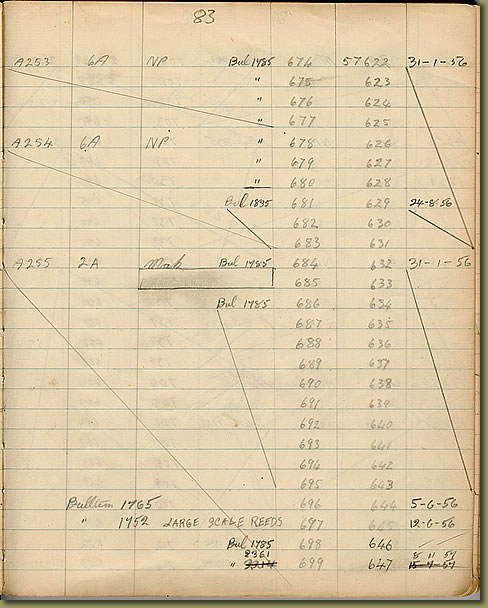 83
A253 6A NP Bul 1785 674 57622 31-1-56
" 675 623
" 676 624
" 677 625
A254 6A NP " 678 626
" 679 627
" 680 628
Bul 1835 681 629 24-8-56
682 630
683 631
A255 2A Mah Bul 1785 684 632 31-1-56
685 633
Bul 1785 686 634
687 635
688 636
689 637
690 638
691 639
692 640
693 641
694 642
695 643
Bulltin 1765 696 644 5-6-56
" 1752 LARGE SCALE REEDS 697 645 12-6-56
Bul 1785 698 646
2361 8 11 57
" 2214 699 647 15-7-57